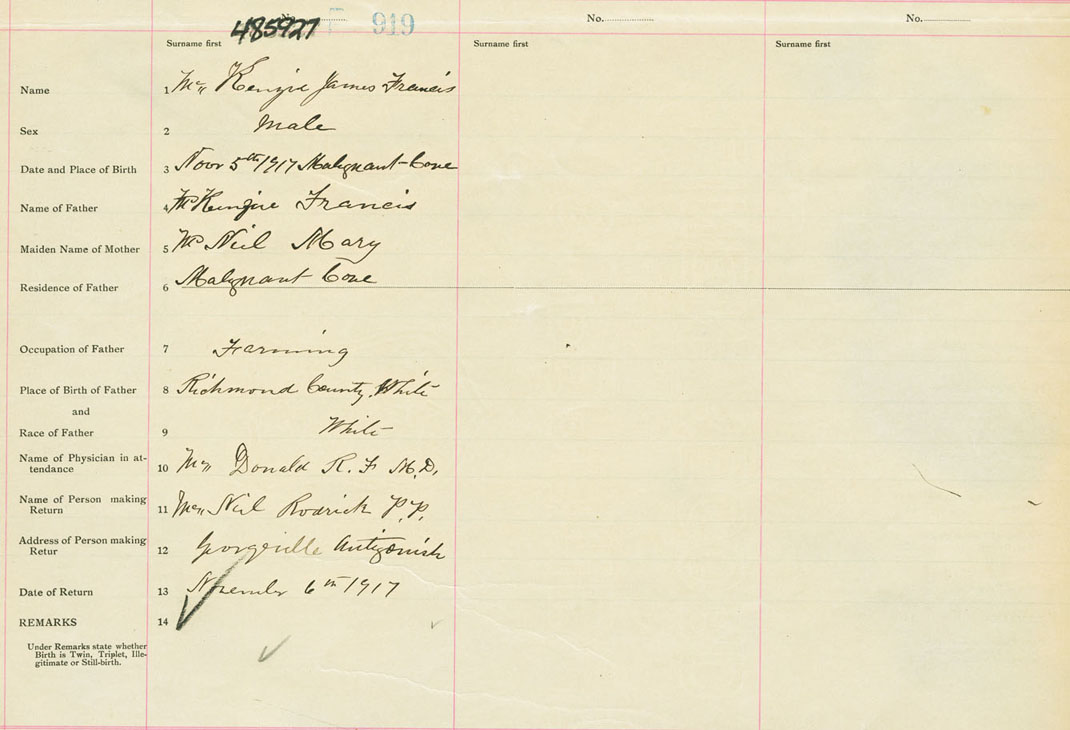 No. No. No.
485927 919
Surname first Surname first Surname first
Name 1 Mc Kenzie James Francis
Sex 2 Male
Date and Place of Birth 3 Novr 5th 1917 Malignant Cove
Name of Father 4 Mc Kenzie Francis
Maiden Name of Mother 5 Mc Neil Mary
Residence of Father 6 Malignant Cove
Occupation of Father 7 Farming
Place of Birth of Father 8 Richmond County, White
and
Race of Father 9 White
Name of Physician in at-
tendance 10 Mc Donald R. F M.D.
Name of Person making
Return 11 Mc Neil Rodrick P.P.
Address of Person making
Retur 12 Georgeville Antigonish
Date of Return 13 November 6th 1917
REMARKS 14
Under Remarks state whether
Birth is Twin, Triplet, Ille-
gitimate or Still-birth.